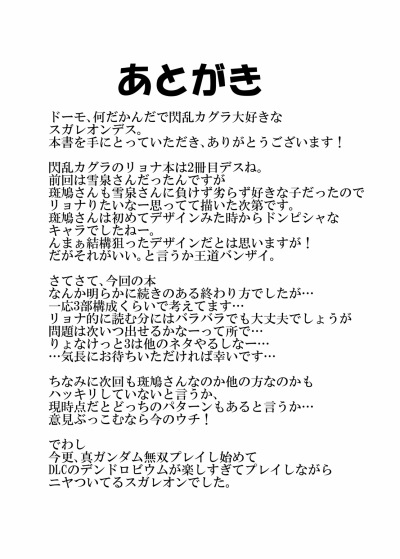 あとがき
ドーモ、何だかんだで閃乱カグラ大好きな
スガレオンデス。
本書を手にとっていただき、ありがとうございます！
閃乱カグラのリョナ本は2冊目デスね。
前回は雪泉さんだったんですが
斑鳩さんも雪泉さんに負けず劣らず好きな子だったので
リョナりたいなー思ってて描いた次第です。
斑鳩さんは初めてデザインみた時からドンピシャな
キャラでしたねー。
んまぁ結構狙ったデザインだとは思いますが！
だがそれがいい。と言うか王道バンザイ。
さてさて、今回の本
なんか明らかに続きのある終わり方でしたが…
一応3部構成くらいで考えてます…
リョナ的に読む分にはバラバラでも大丈夫でしょうが
問題は次いつ出せるかなーって所で…
りょなけっと3は他のネタやるしなー…
…気長にお待ちいただければ幸いです…
ちなみに次回も斑鳩さんなのか他の方なのかも
ハッキリしていないと言うか、
現時点だとどっちのパターンもあると言うか…
意見ぶっこむなら今のウチ！
でわし
今更、真ガンダム無双プレイし始めて
DLCのデンドロビウムが楽しすぎてプレイしながら
ニヤついてるスガレオンでした。